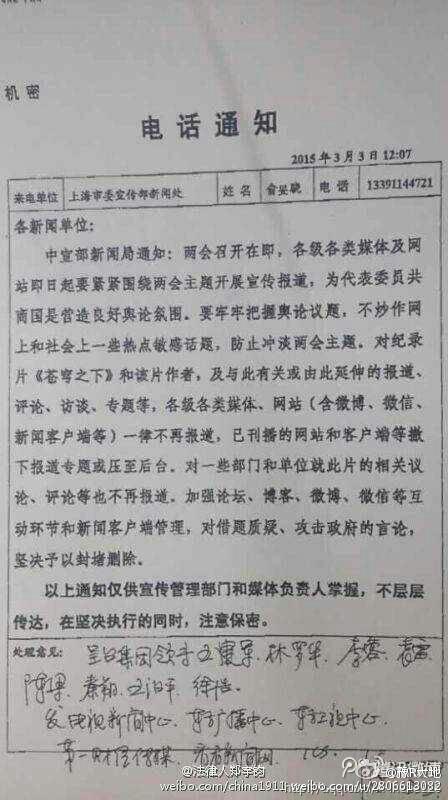 机密
电话通知
2015年3月3日12:07
来电单位 上海市委宣传部新闻处 姓名 俞旻骁 电话 13391144721
各新闻单位：
中宣部新闻局通知：两会召开在即，各级各类媒体及网
站即日起要紧紧围绕两会主题开展宣传报道，为代表委员共
商国是营造良好舆论氛围。要牢牢把握舆论议题，不炒作网
上和社会上一些热点敏感话题，防止冲淡两会主题。对纪录
片《苍穹之下》和该片作者，及与此有关或由此延伸的报道、
评论、访谈、专题等，各级各类媒体、网站（含微博、微信、
新闻客户端等）一律不再报道，已刊播的网站和客户端等撤
下报道专题或压至后台。对一些部门和单位就此片的相关议
论、评论等也不再报道。加强论坛、博客、微博、微信等互
动环节和新闻客户端管理，对借题质疑、攻击政府的言论，
坚决予以封堵删除。
以上通知仅供宣传管理部门和媒体负责人掌握，不层层
传达，在坚决执行的同时，注意保密。
处理意见： 呈集团领导 林罗华
发电视新闻中心、东方广播中心、
第一财经传媒、看看新闻网
@法律人郑宇钧
weibo.com/china1911
weibo.com/u/2806613082